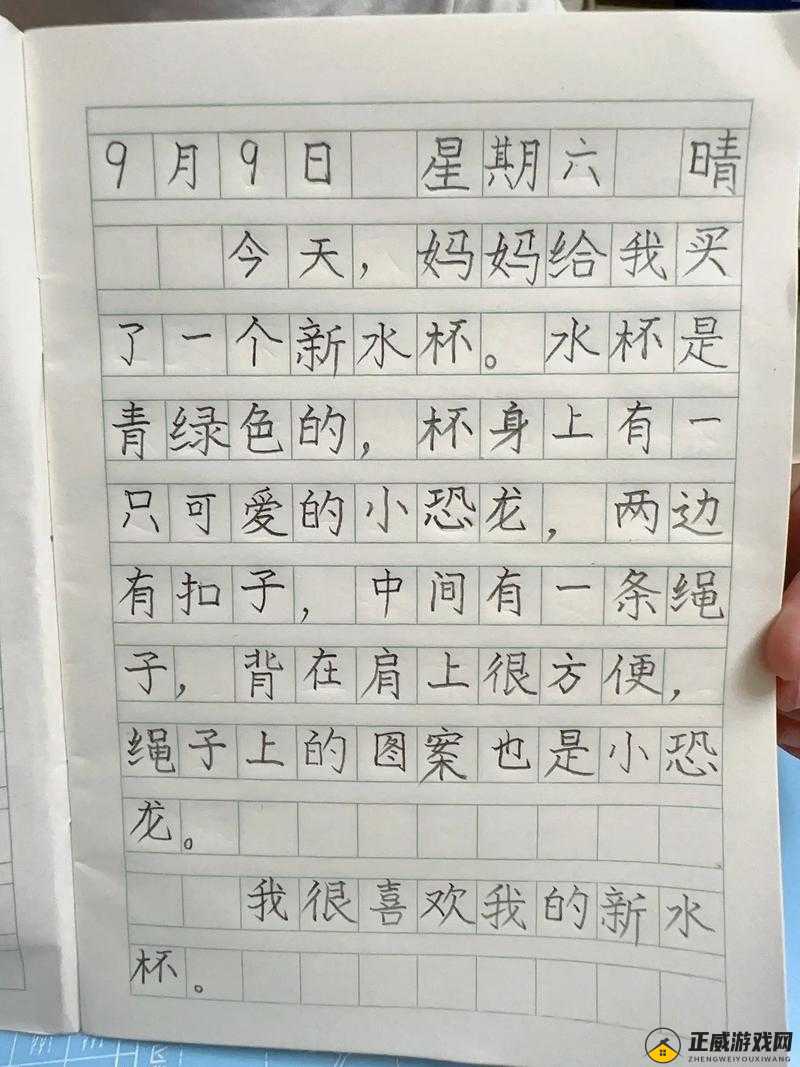 9月9日 星期六 晴
今天，妈妈给我买
了一个新水杯。水杯是
青绿色的，杯身上有一
只可爱的小恐龙，两边
有扣子，中间有一条绳
子，背在肩上很方便，
绳子上的图案也是小恐
龙。
我很喜欢我的新水
杯。
正威游戏网
ZHENGWEIYOUXIWANG